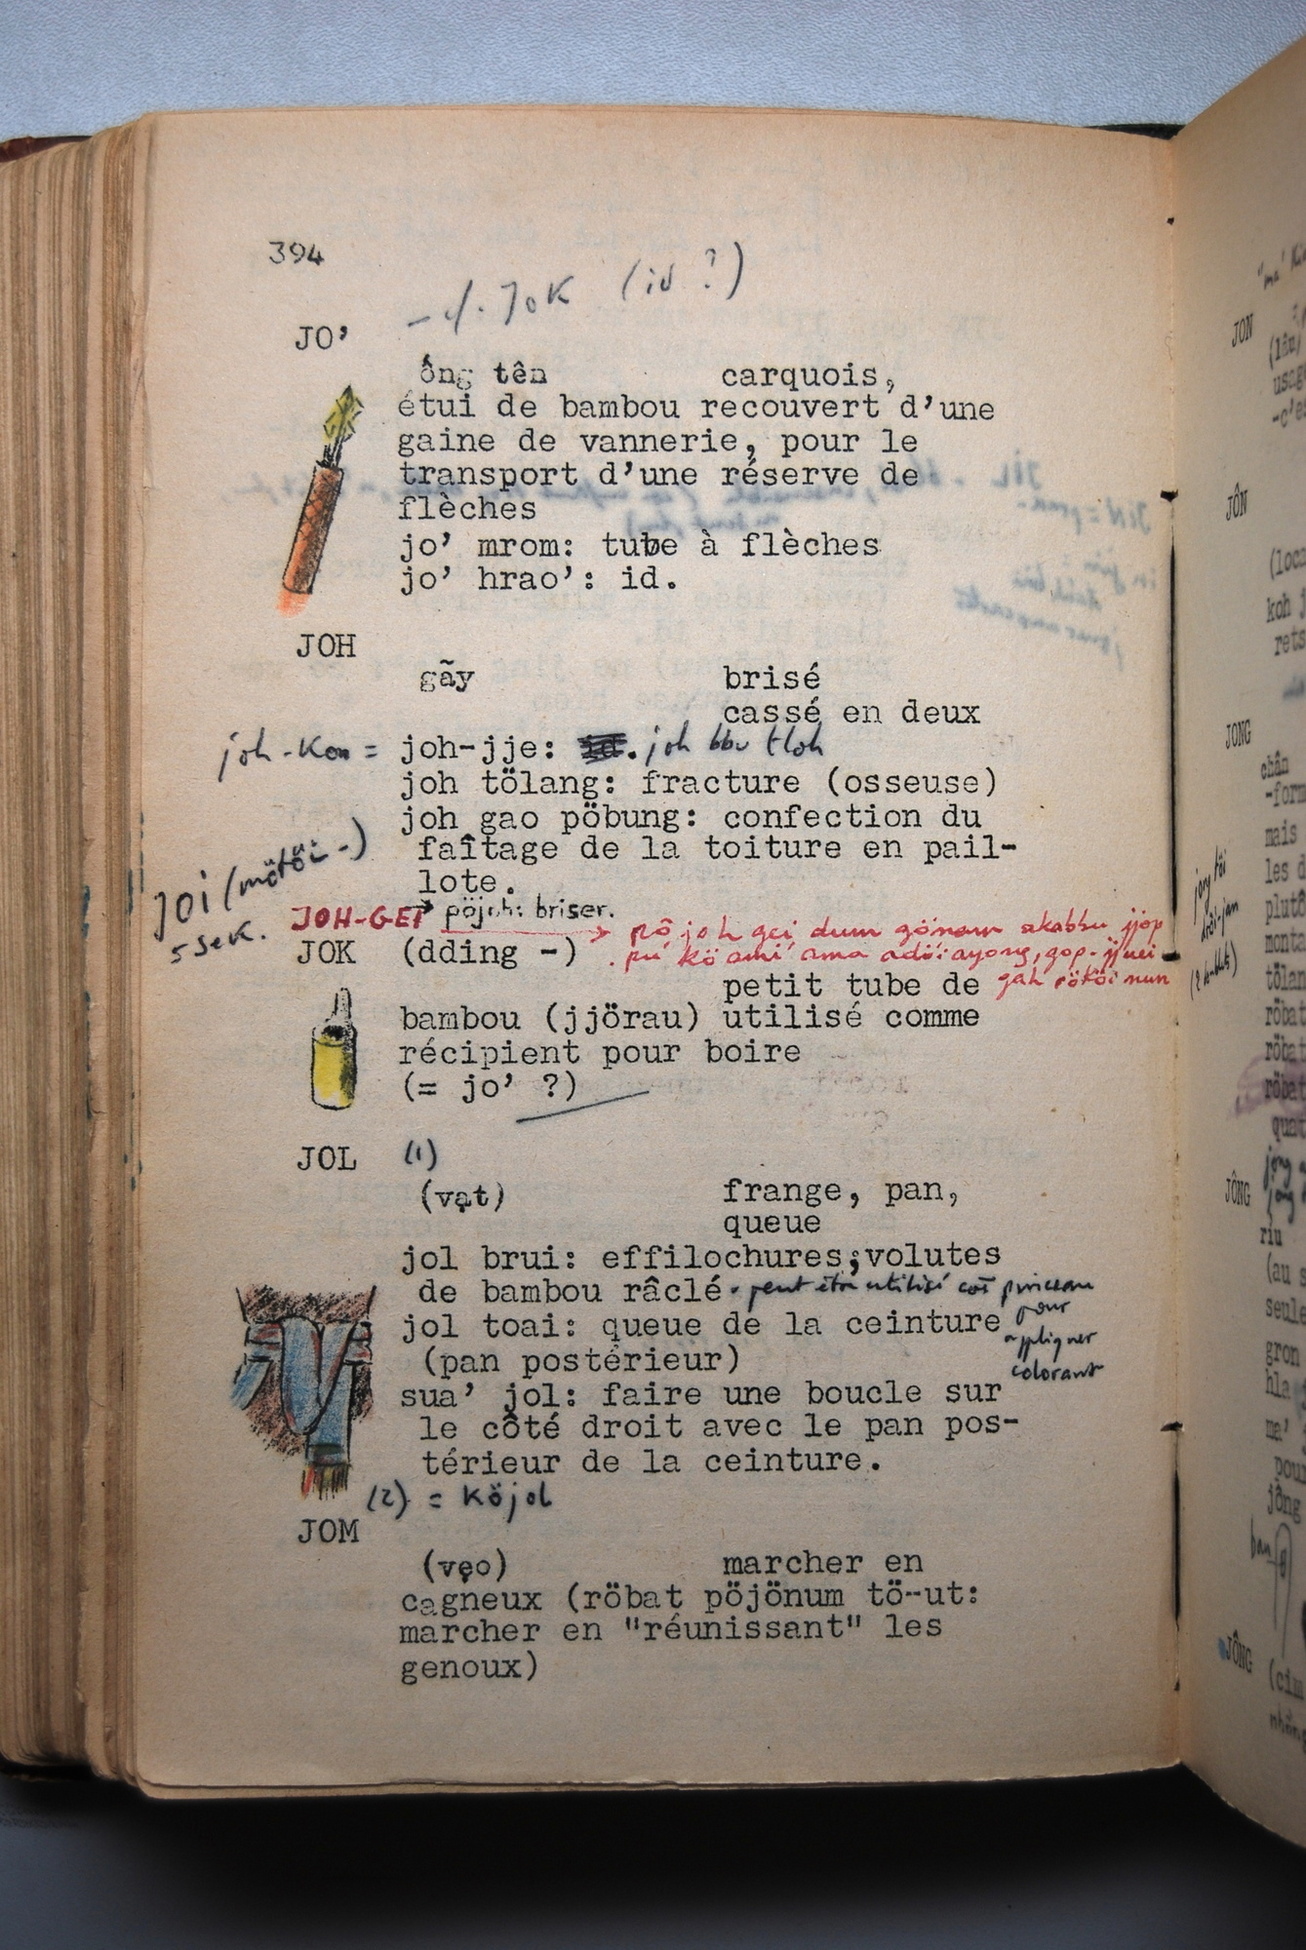 394
- cf. JOK (id ?)
JO’
ống tên carquois,
étui de bambou recouvert d’une
gaine de vannerie, pour le
transport d’une réserve de
flèches
jo’ mrom: tube à flèches
jo’ hrao’: id.
JOH
gãy brisé
cassé en deux
joh-kon = joh-jje: joh bbu tloh
joh tölang: fracture (osseuse)
joh gao pöbung: confection du
faîtage de la toiture en pail-
lote.
JOI (mötöi -)
s sek.
JOH-GEI pöjoh: briser.
pö joh gei dum gönam akabbu jjop
JOK (dding -)
petit tube de gah rököi nun
bambou (jjörau) utilisé comme
récipient pour boire
(= jo’ ?)
JOL (1)
(vạt) frange, pan,
queue
jol brui: effilochures;volutes
de bambou râclé. peut être utilisé co͞ pinceau
pour
jol toai: queue de la ceinture appliquer
(pan postérieur) colorant
sua’ jol: faire une boucle sur
le côté droit avec le pan pos-
térieur de la ceinture.
(2) = köjol
JOM
(vẹo) marcher en
cagneux (röbat pöjönum tö-ut:
marcher en "réunissant" les
genoux)
JON
JÔN
(loc
koh j
rets
JONG
chân
-form
mais
les d
plutô
monta
tölan
röbat
JÔNG
riu
(au s
seule
gron
hla
pour
jông
JÔNG
(cim